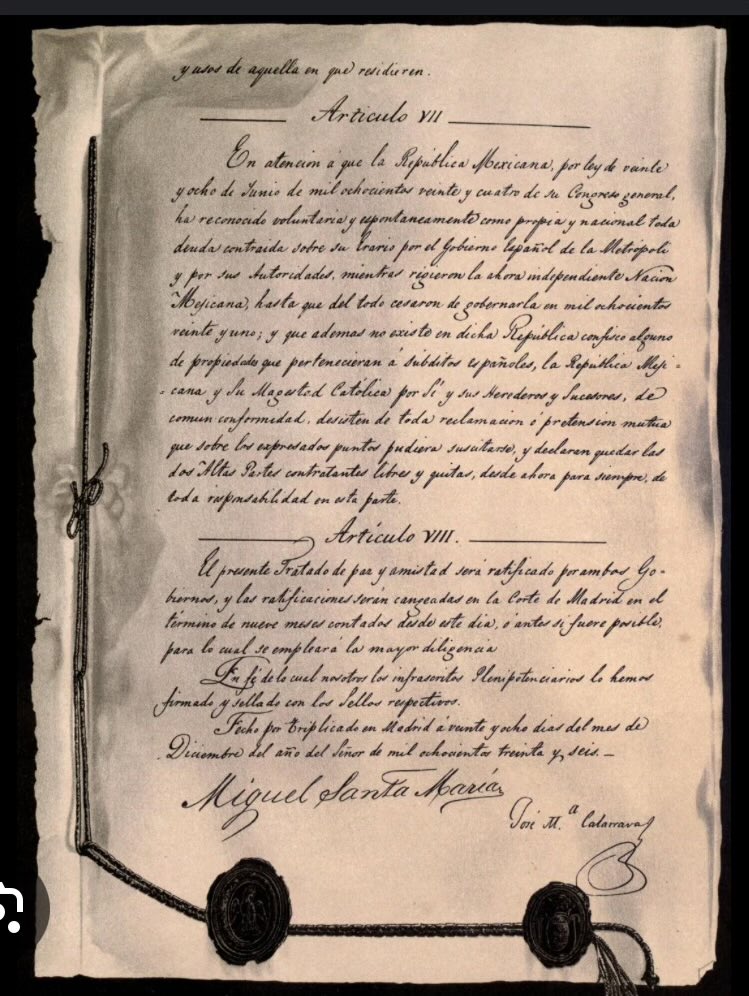 y usos de aquella en que residieren.
Articulo VII
En atencion á que la República Mexicana, por ley de veinte
y ocho de Junio de mil ochocientos veinte y cuatro de su Congreso general,
ha reconocido voluntaria y espontaneamente como propia y nacional toda
deuda contraida sobre su Erario por el Gobierno Español de la Metropoli
y por sus Autoridades, mientras rigieron la ahora independiente Nacion
Mejicana, hasta que del todo cesaron de gobernarla en mil ochocientos
veinte y uno; y que ademas no existe en dicha República confisco alguno
de propiedades que pertenecieran á súbditos españoles, la República Meji-
cana y Su Magestad Católica por Sí y sus Herederos y Sucesores, de
comun conformidad, desisten de toda reclamacion ó pretension mutua
que sobre los expresados puntos pudiera suscitarse, y declaran quedar las
dos Altas Partes contratantes libres y quitas, desde ahora para siempre, de
toda responsabilidad en esta parte.
Artículo VIII.
El presente Tratado de paz y amistad será ratificado por ambos Go-
biernos, y las ratificaciones serán cangeadas en la Corte de Madrid en el
término de nueve meses contados desde este dia, ó antes si fuere posible,
para lo cual se empleará la mayor diligencia
En fé de lo cual nosotros los infrascritos Plenipotenciarios lo hemos
firmado y sellado con los Sellos respectivos.
Fecho por triplicado en Madrid á veinte y ocho dias del mes de
Diciembre del año del Señor de mil ochocientos treinta y seis.—
Miguel Santa María
José M.ª Calatrava